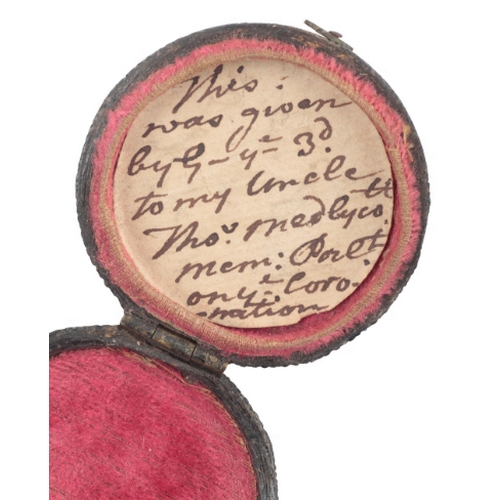 This:
was given
by G- yᵉ 3ᵈ
to my Uncle
Thoˢ Medlycott
mem: Parlt.
on yᵉ Coro-
nation